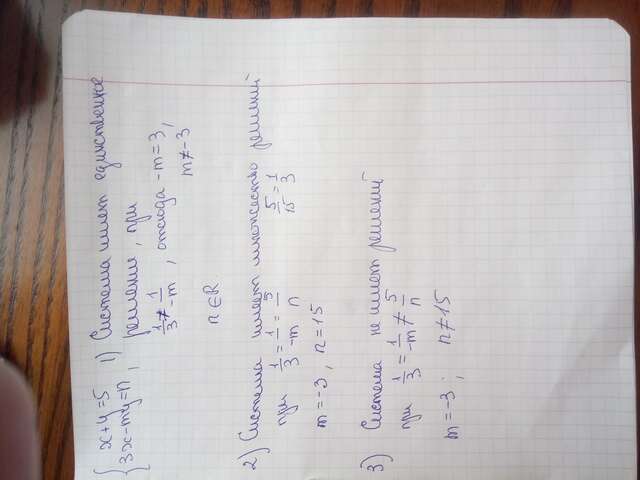 { x+y=5
3x-my=n,
1) Система имеет единственное
решение, при
1/3 ≠ 1/-m, отсюда -m=3,
m≠-3
n∈R
2) Система имеет множество решений
при 1/3 = 1/-m = 5/n 5/15 = 1/3
m=-3, n=15
3) Система не имеет решений
при 1/3 = 1/-m ≠ 5/n
m=-3; n≠15